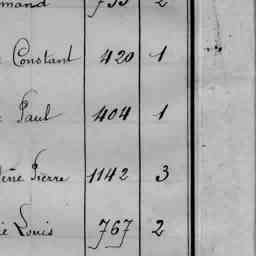 mand 733 2
Constant 420 1
Paul 404 1
Pierre 1142 3
Louis 767 2